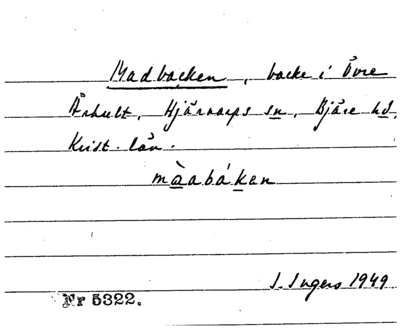 Madbacken, backe i Övre
Århult, Hjärnarps sn, Bjäre hd,
Krist. län.
màabáken
I. Ingers 1949
Nr 5322.